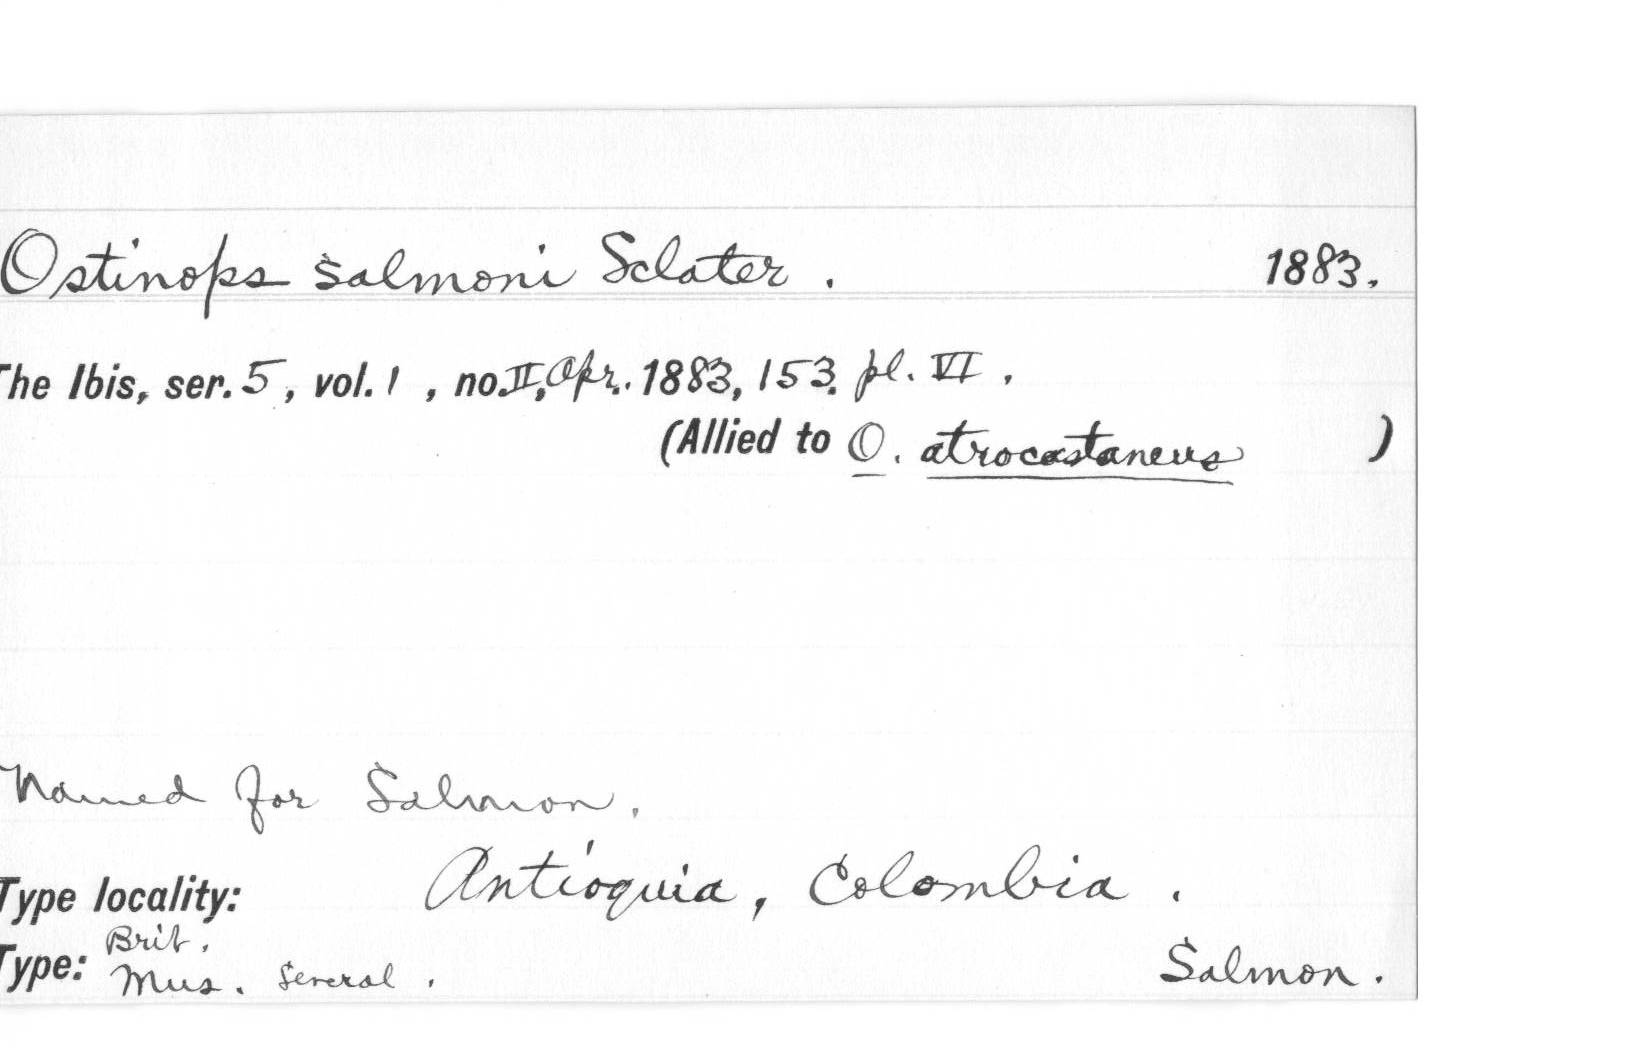 Ostinops salmoni Sclater. 1883.
The Ibis, ser. 5, vol. 1, no. II, Apr. 1883, 153. pl. VI.
(Allied to O. atrocastaneus )
Named for Salmon.
Type locality: Antioquia, Colombia.
Type: Brit. Mus. Several. Salmon.